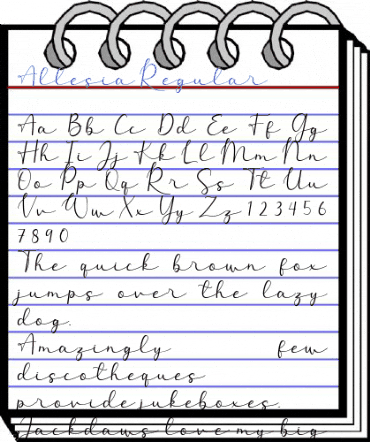 Allesia Regular
Aa Bb Cc Dd Ee Ff Gg
Hh Ii Jj Kk Ll Mm Nn
Oo Pp Qq Rr Ss Tt Uu
Vv Ww Xx Yy Zz 1 2 3 4 5 6
7 8 9 0
The quick brown fox
jumps over the lazy
dog.
Amazingly few
discotheques
provide jukeboxes.
Jackdaws love my big